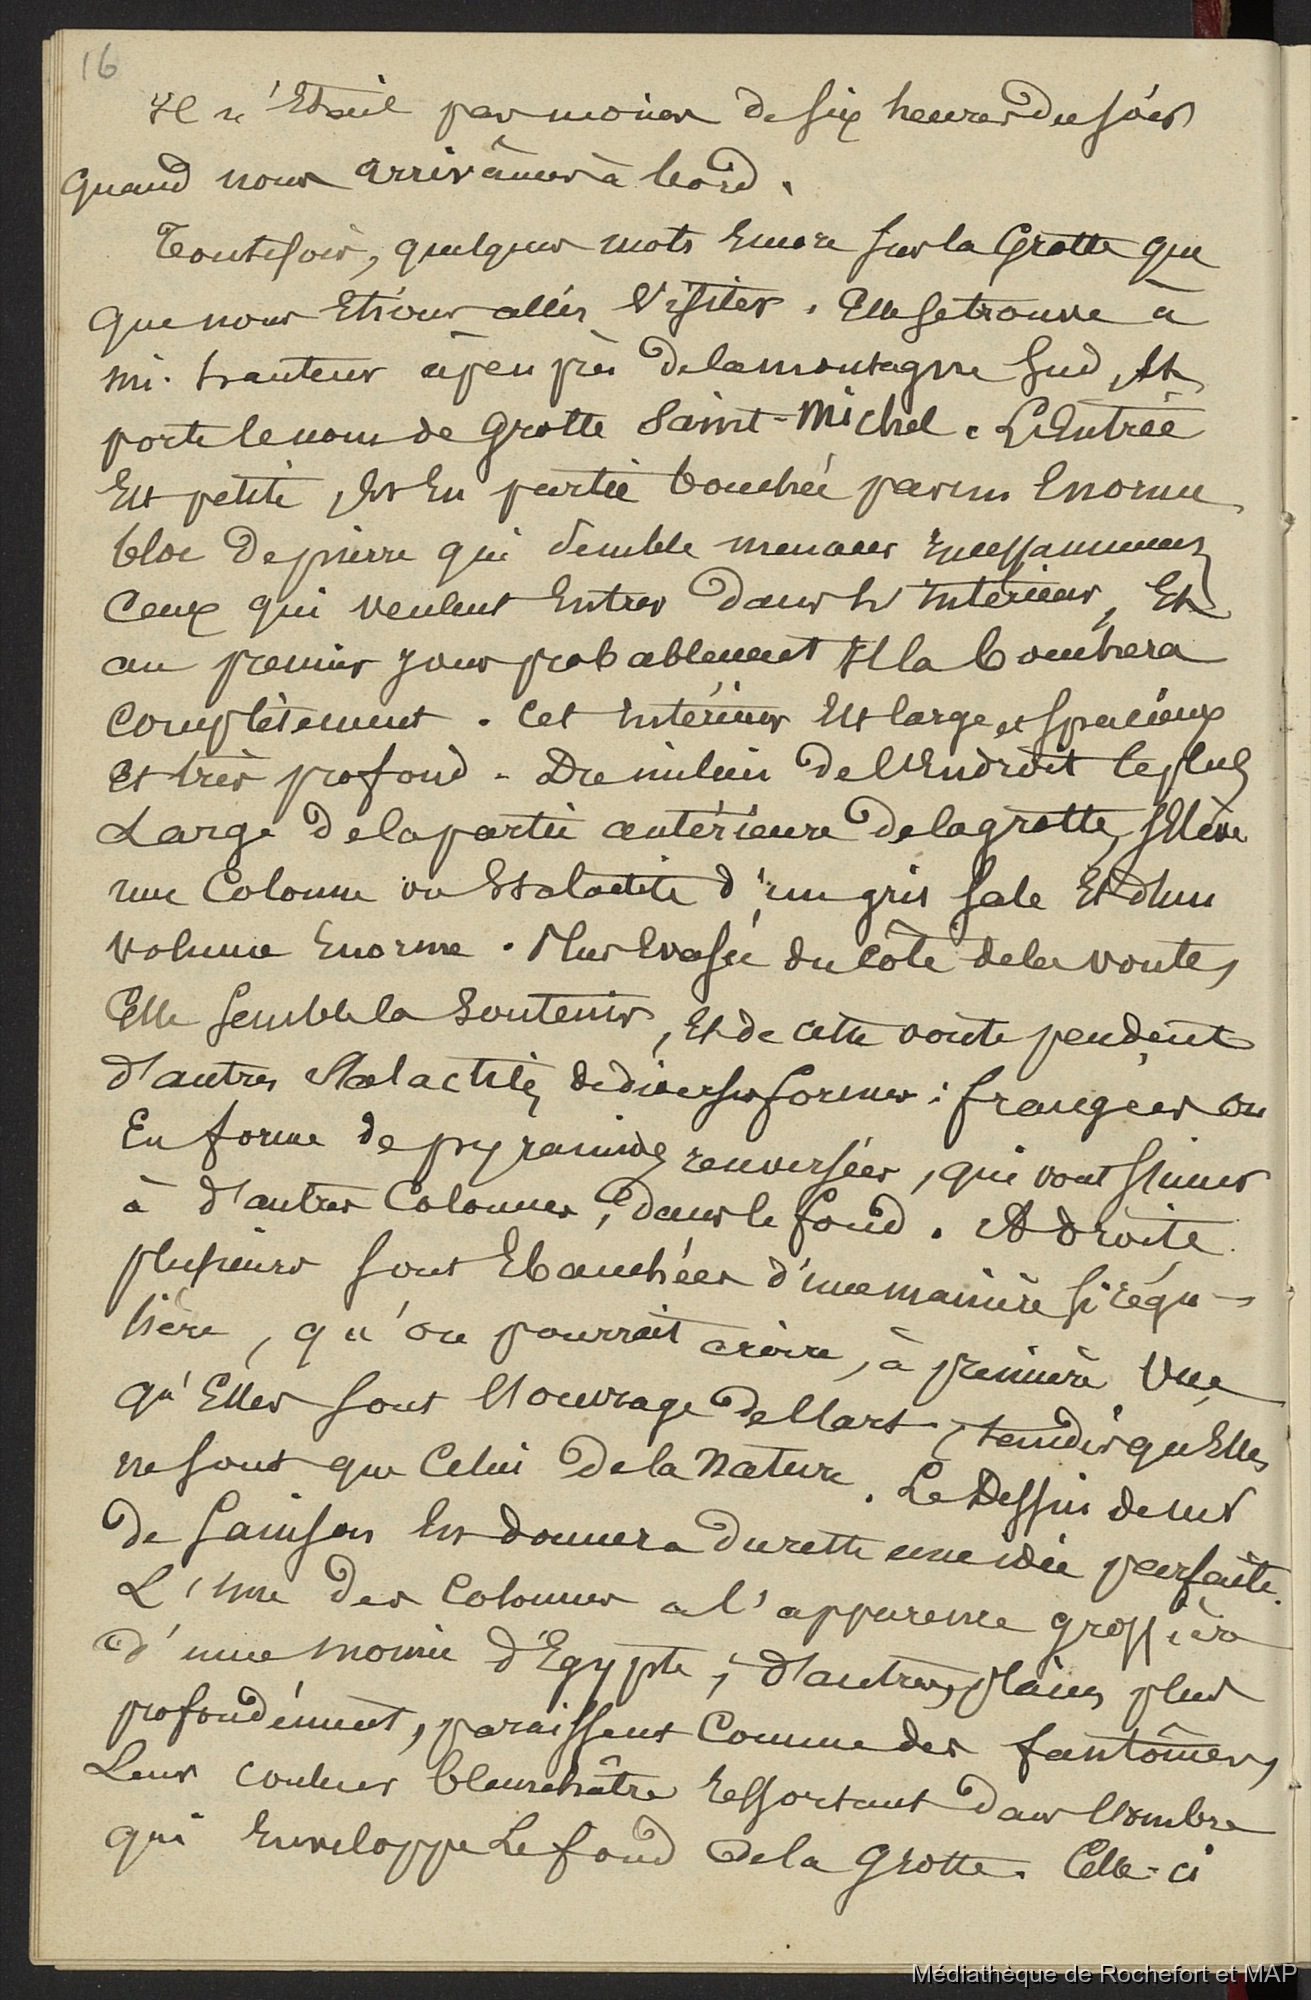 16
Il n'Etait pas moins de six heures du soir
quand nous arrivâmes à bord.
Toutefois, quelques mots Encore sur la Grotte que
que nous Etions allés Visiter. Elle se trouve à
mi-hauteur à peu près de la montagne Sud, Et
porte le nom de Grotte Saint-Michel. L'Entrée
Est petite, Est En partie bouchée par un Enorme
bloc de pierre qui semble menacer
Ceux qui veulent Entrer dans l'Intérieur, Et
au premier jour probablement Il la bouchera
Complètement. Cet Intérieur Est large et spacieux
et très profond. Du milieu de l'Endroit le plus
Large de la partie antérieure de la grotte, s'Elève
une Colonne ou Stalactite d'un gris sale Et d'un
volume Enorme. Plus Evasée du côté de la voute,
Elle semble la Soutenir, Et de cette voute pendent
d'autres Stalactites de diverses formes : frangées ou
En forme de pyramides renversées, qui vont s'unir
à d'autres Colonnes, dans le fond. A droite
plusieurs sont Ebauchées d'une manière si régu-
lière, qu'on pourrait croire, à première Vue
qu'Elles sont l'ouvrage de l'art, tandis qu'Elles
ne sont que Celui de la Nature. Le Dessin de Mr
de Sainson En donnera du reste une idée parfaite.
L'Une des Colonnes a l'apparence grossière
d'une momie d'Egypte ; d'autres, placées plus
profondément, paraissent Comme des fantômes,
Leur couleur blanchâtre ressortant dans l'ombre
qui Enveloppe Le fond de la Grotte. Celle-ci
Médiathèque de Rochefort et MAP